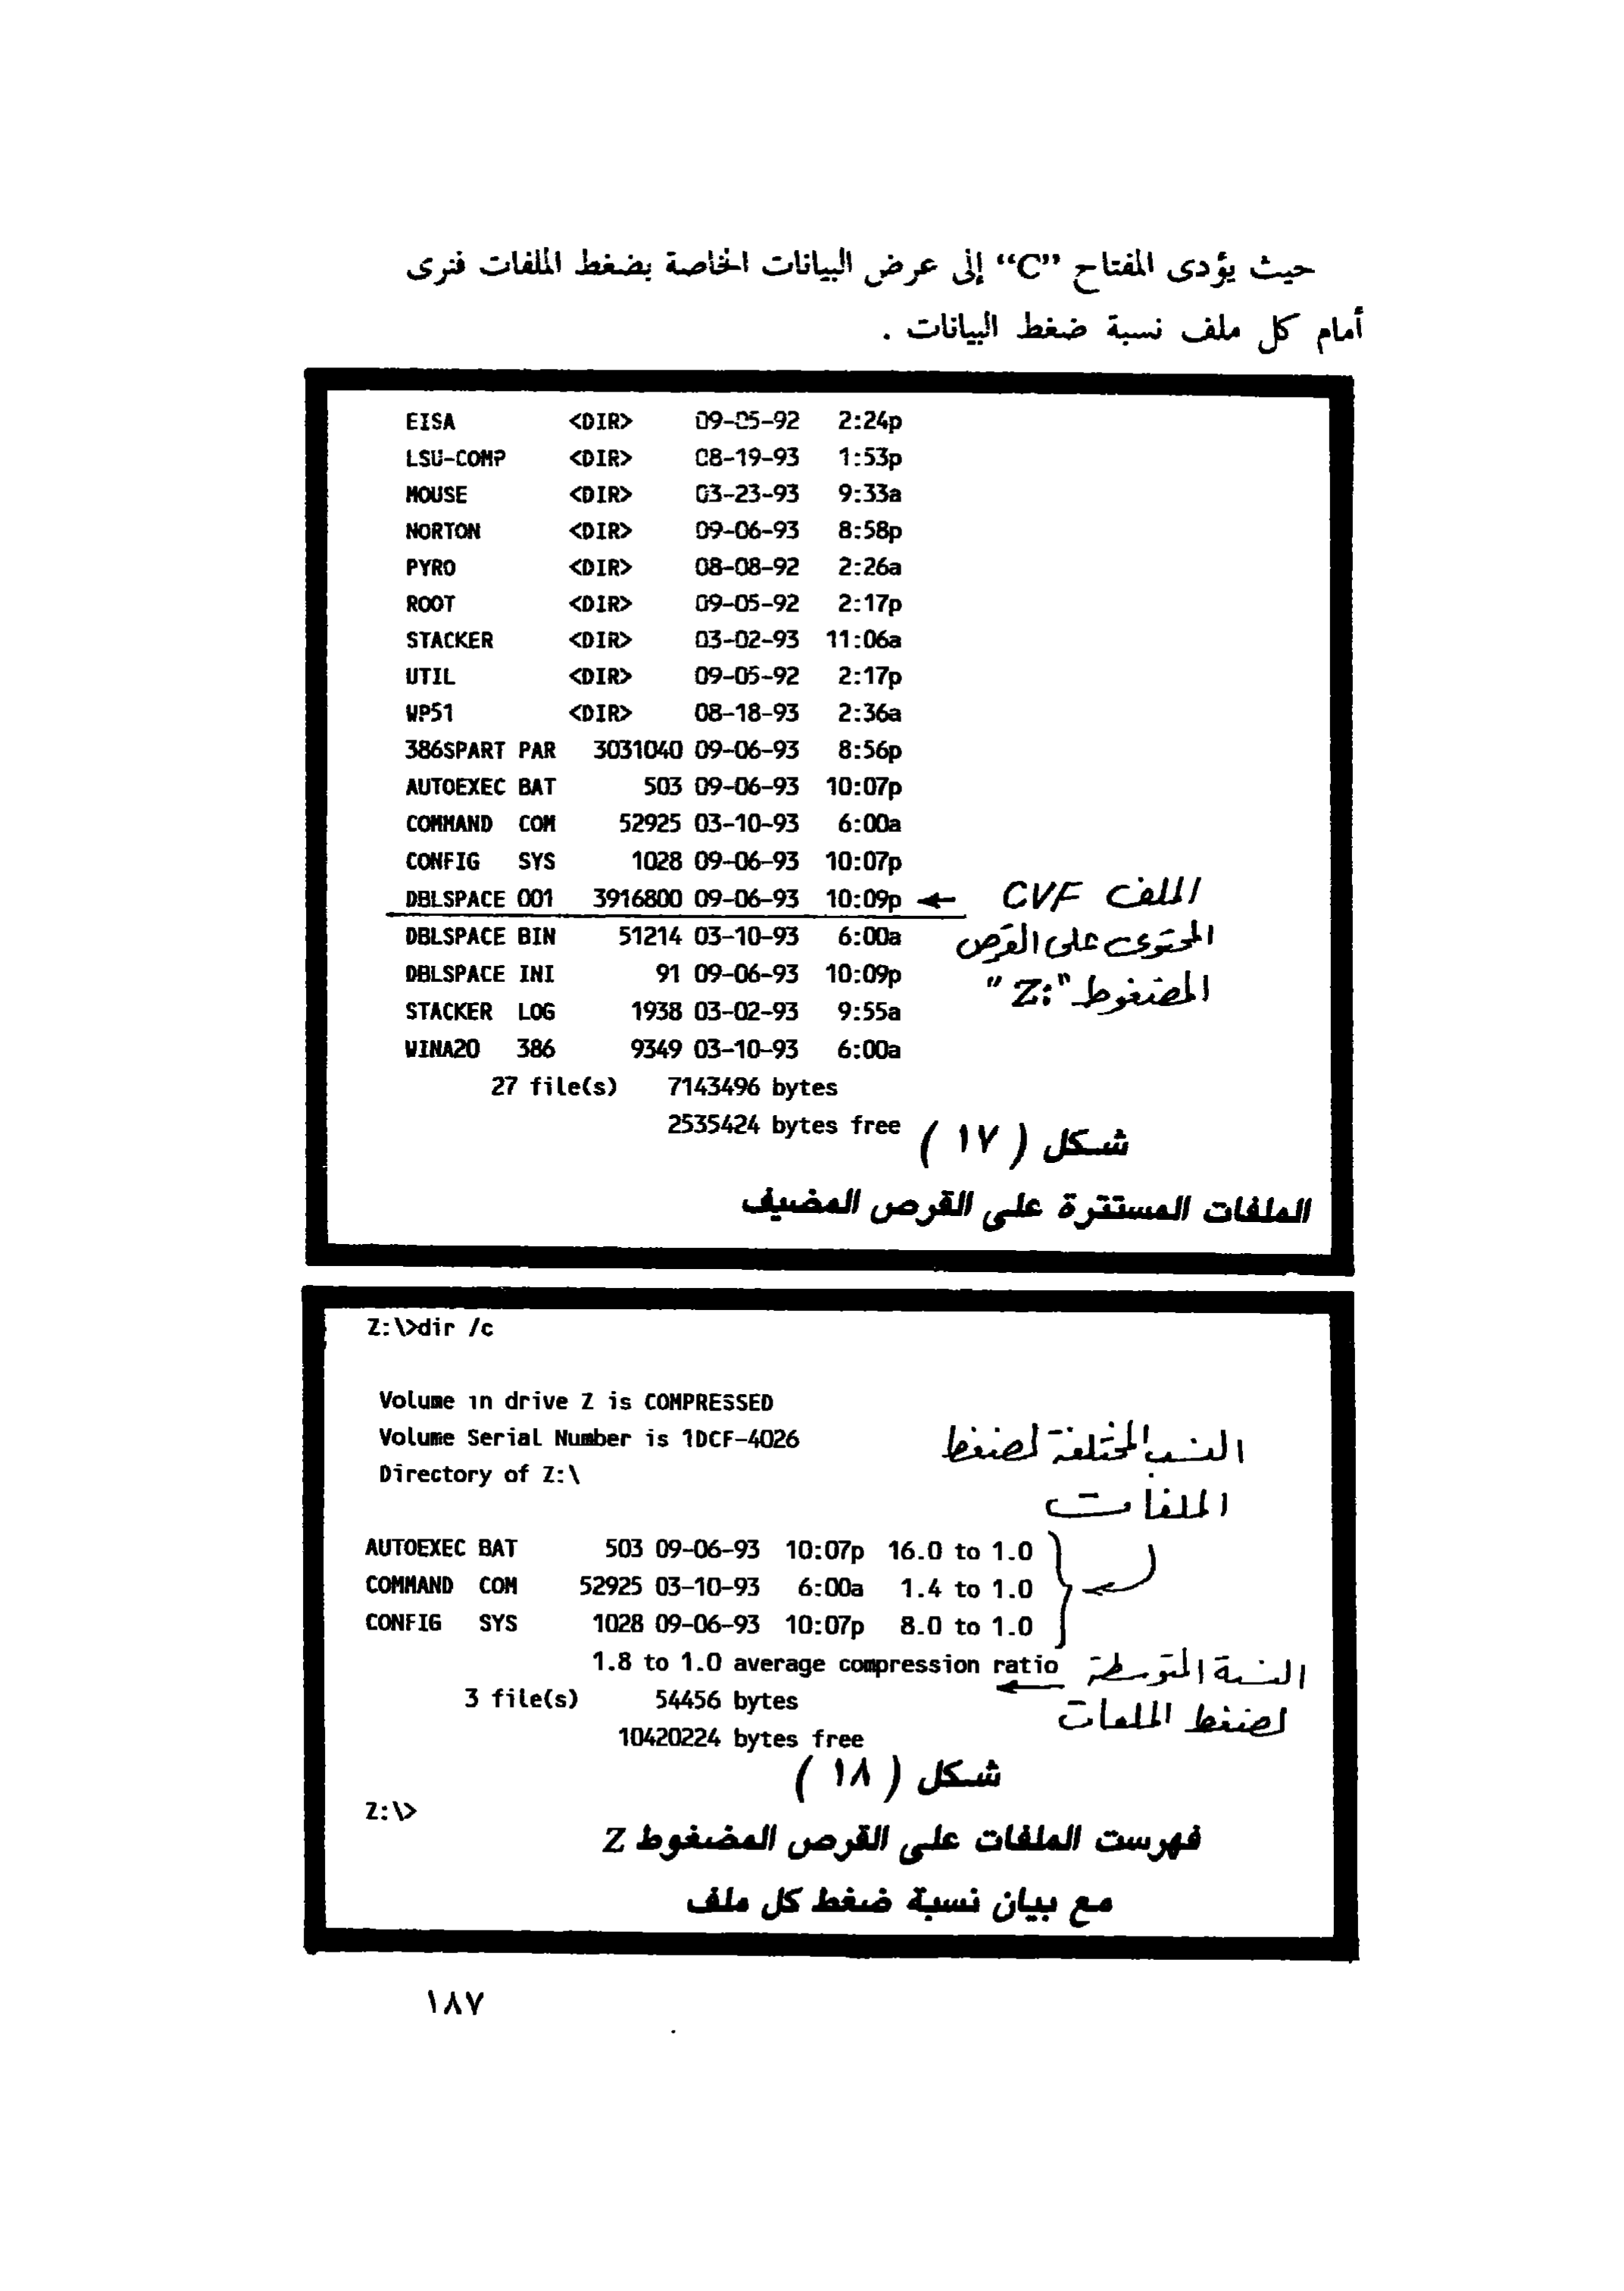 حيث يؤدى المفتاح “C” إلى عرض البيانات الخاصة بضغط الملفات فنرى
أمام كل ملف نسبة ضغط البيانات .
EISA <DIR> 09-05-92 2:24p
LSU-COMP <DIR> 08-19-93 1:53p
MOUSE <DIR> 03-23-93 9:33a
NORTON <DIR> 09-06-93 8:58p
PYRO <DIR> 08-08-92 2:26a
ROOT <DIR> 09-05-92 2:17p
STACKER <DIR> 03-02-93 11:06a
UTIL <DIR> 09-05-92 2:17p
WP51 <DIR> 08-18-93 2:36a
386SPART PAR 3031040 09-06-93 8:56p
AUTOEXEC BAT 503 09-06-93 10:07p
COMMAND COM 52925 03-10-93 6:00a
CONFIG SYS 1028 09-06-93 10:07p
DBLSPACE 001 3916800 09-06-93 10:09p ← الملف CVF
DBLSPACE BIN 51214 03-10-93 6:00a المحتوى على القرص
DBLSPACE INI 91 09-06-93 10:09p المضغوط "Z:"
STACKER LOG 1938 03-02-93 9:55a
WINA20 386 9349 03-10-93 6:00a
27 file(s) 7143496 bytes
2535424 bytes free
شكل ( ١٧ )
الملفات المستترة على القرص المضيف
Z:\>dir /c
Volume in drive Z is COMPRESSED
Volume Serial Number is 1DCF-4026
Directory of Z:\
النسب المختلفة لضغط
الملفات
AUTOEXEC BAT 503 09-06-93 10:07p 16.0 to 1.0
COMMAND COM 52925 03-10-93 6:00a 1.4 to 1.0
CONFIG SYS 1028 09-06-93 10:07p 8.0 to 1.0
1.8 to 1.0 average compression ratio النسبة المتوسطة
3 file(s) 54456 bytes لضغط الملفات
10420224 bytes free
شكل ( ١٨ )
Z:\>
فهرست الملفات على القرص المضغوط Z
مع بيان نسبة ضغط كل ملف
١٨٧